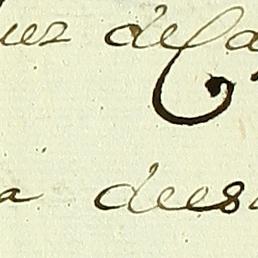 uez de Ca
a dees